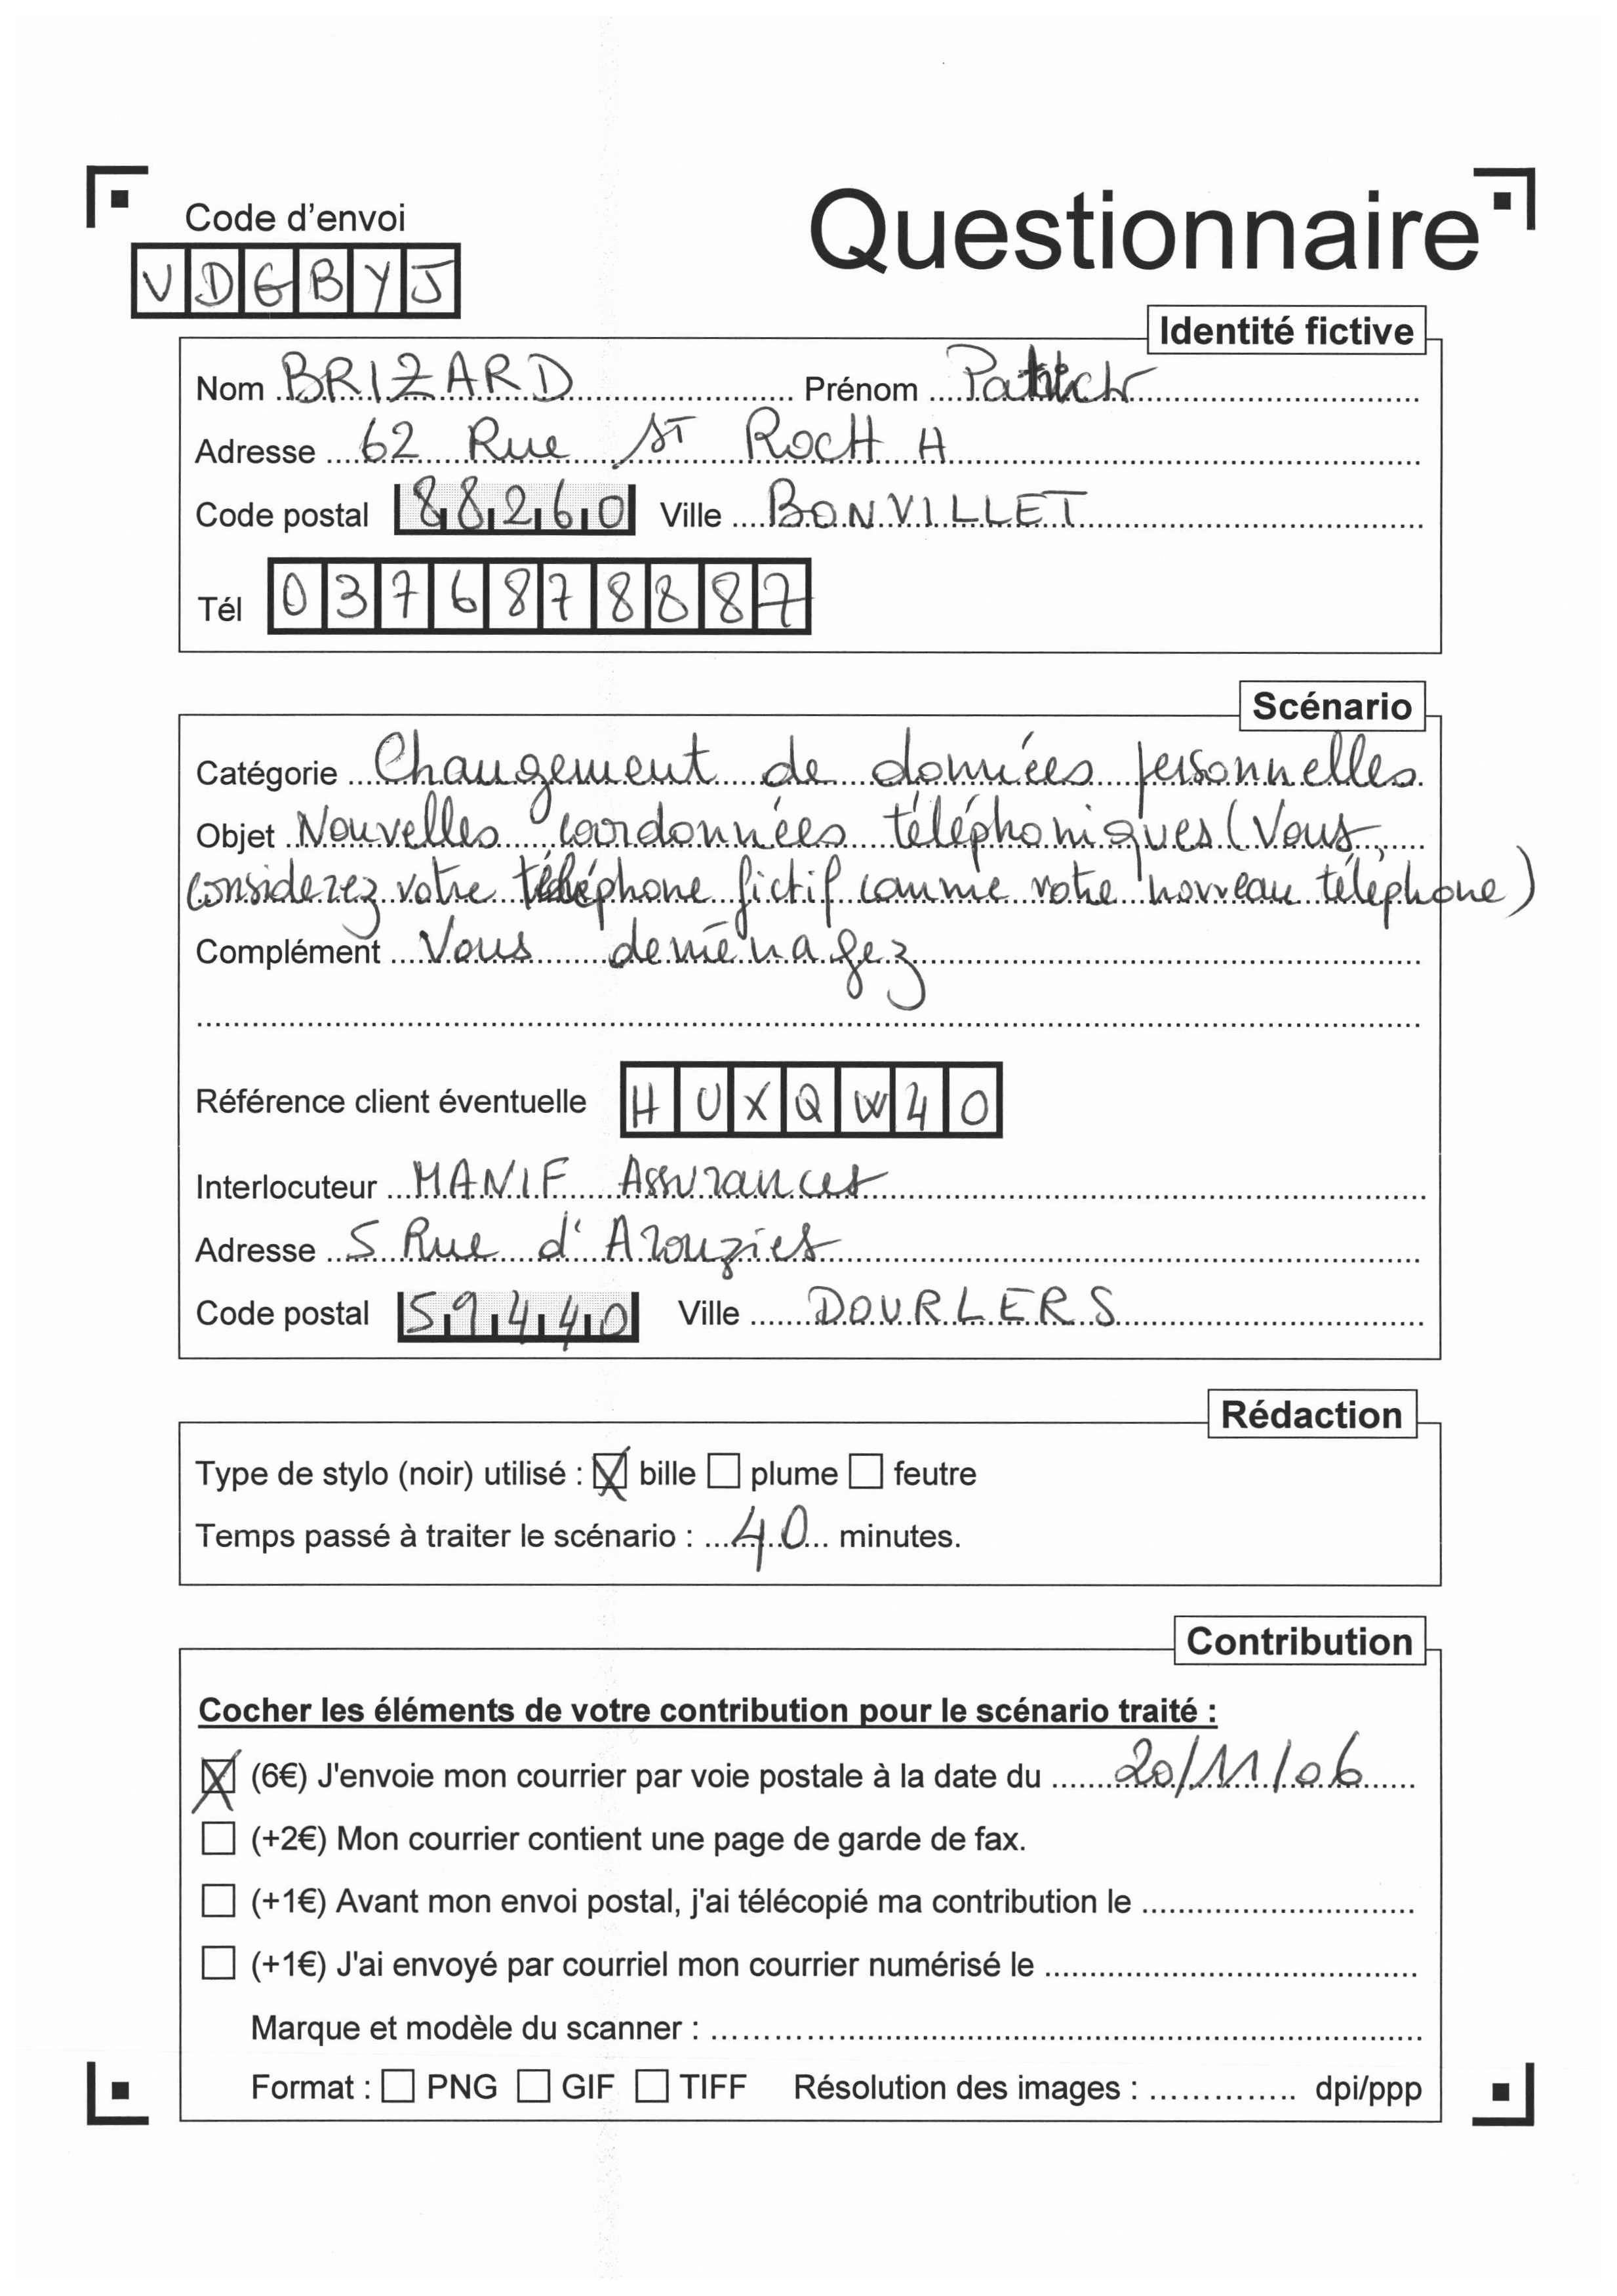 Code d'envoi
VDGBYJ
Questionnaire
Identité fictive
Nom BRIZARD Prénom Patrick
Adresse 62 Rue ST ROCH H
Code postal 88260 Ville BONVILLET
Tél 0376878887
Scénario
Catégorie Changement de données personnelles
Objet Nouvelles coordonnées téléphoniques (Vous
considerez votre téléphone fictif comme votre nouveau téléphone)
Complément Vous deménagez
Référence client éventuelle HUXQW40
Interlocuteur MANIF Assurances
Adresse 5 Rue d'Arouzies
Code postal 59440 Ville DOURLERS
Rédaction
Type de stylo (noir) utilisé : bille plume feutre
Temps passé à traiter le scénario : 40 minutes.
Contribution
Cocher les éléments de votre contribution pour le scénario traité :
(6€) J'envoie mon courrier par voie postale à la date du 20/11/06
(+2€) Mon courrier contient une page de garde de fax.
(+1€) Avant mon envoi postal, j'ai télécopié ma contribution le
(+1€) J'ai envoyé par courriel mon courrier numérisé le
Marque et modèle du scanner :
Format : PNG GIF TIFF Résolution des images : dpi/ppp